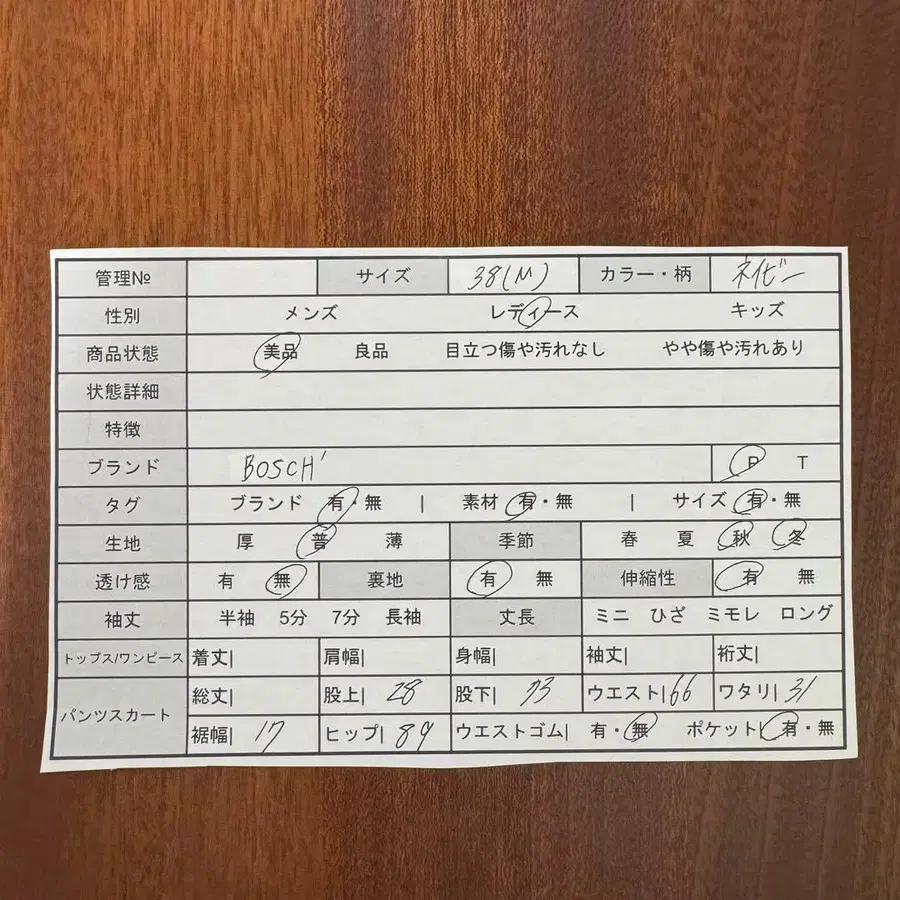 管理№ サイズ 38(M) カラー・柄 ネイビー
性別 メンズ レディース キッズ
商品状態 美品 良品 目立つ傷や汚れなし やや傷や汚れあり
状態詳細
特徴
ブランド BOSCH P T
タグ ブランド 有・無 | 素材 有・無 | サイズ 有・無
生地 厚 普 薄 季節 春 夏 秋 冬
透け感 有 無 裏地 有 無 伸縮性 有 無
袖丈 半袖 5分 7分 長袖 丈長 ミニ ひざ ミモレ ロング
トップス/ワンピース 着丈| 肩幅| 身幅| 袖丈| 裄丈|
パンツスカート 総丈| 股上| 28 股下| 73 ウエスト| 66 ワタリ| 31
裾幅| 17 ヒップ| 89 ウエストゴム| 有・無 ポケット| 有・無